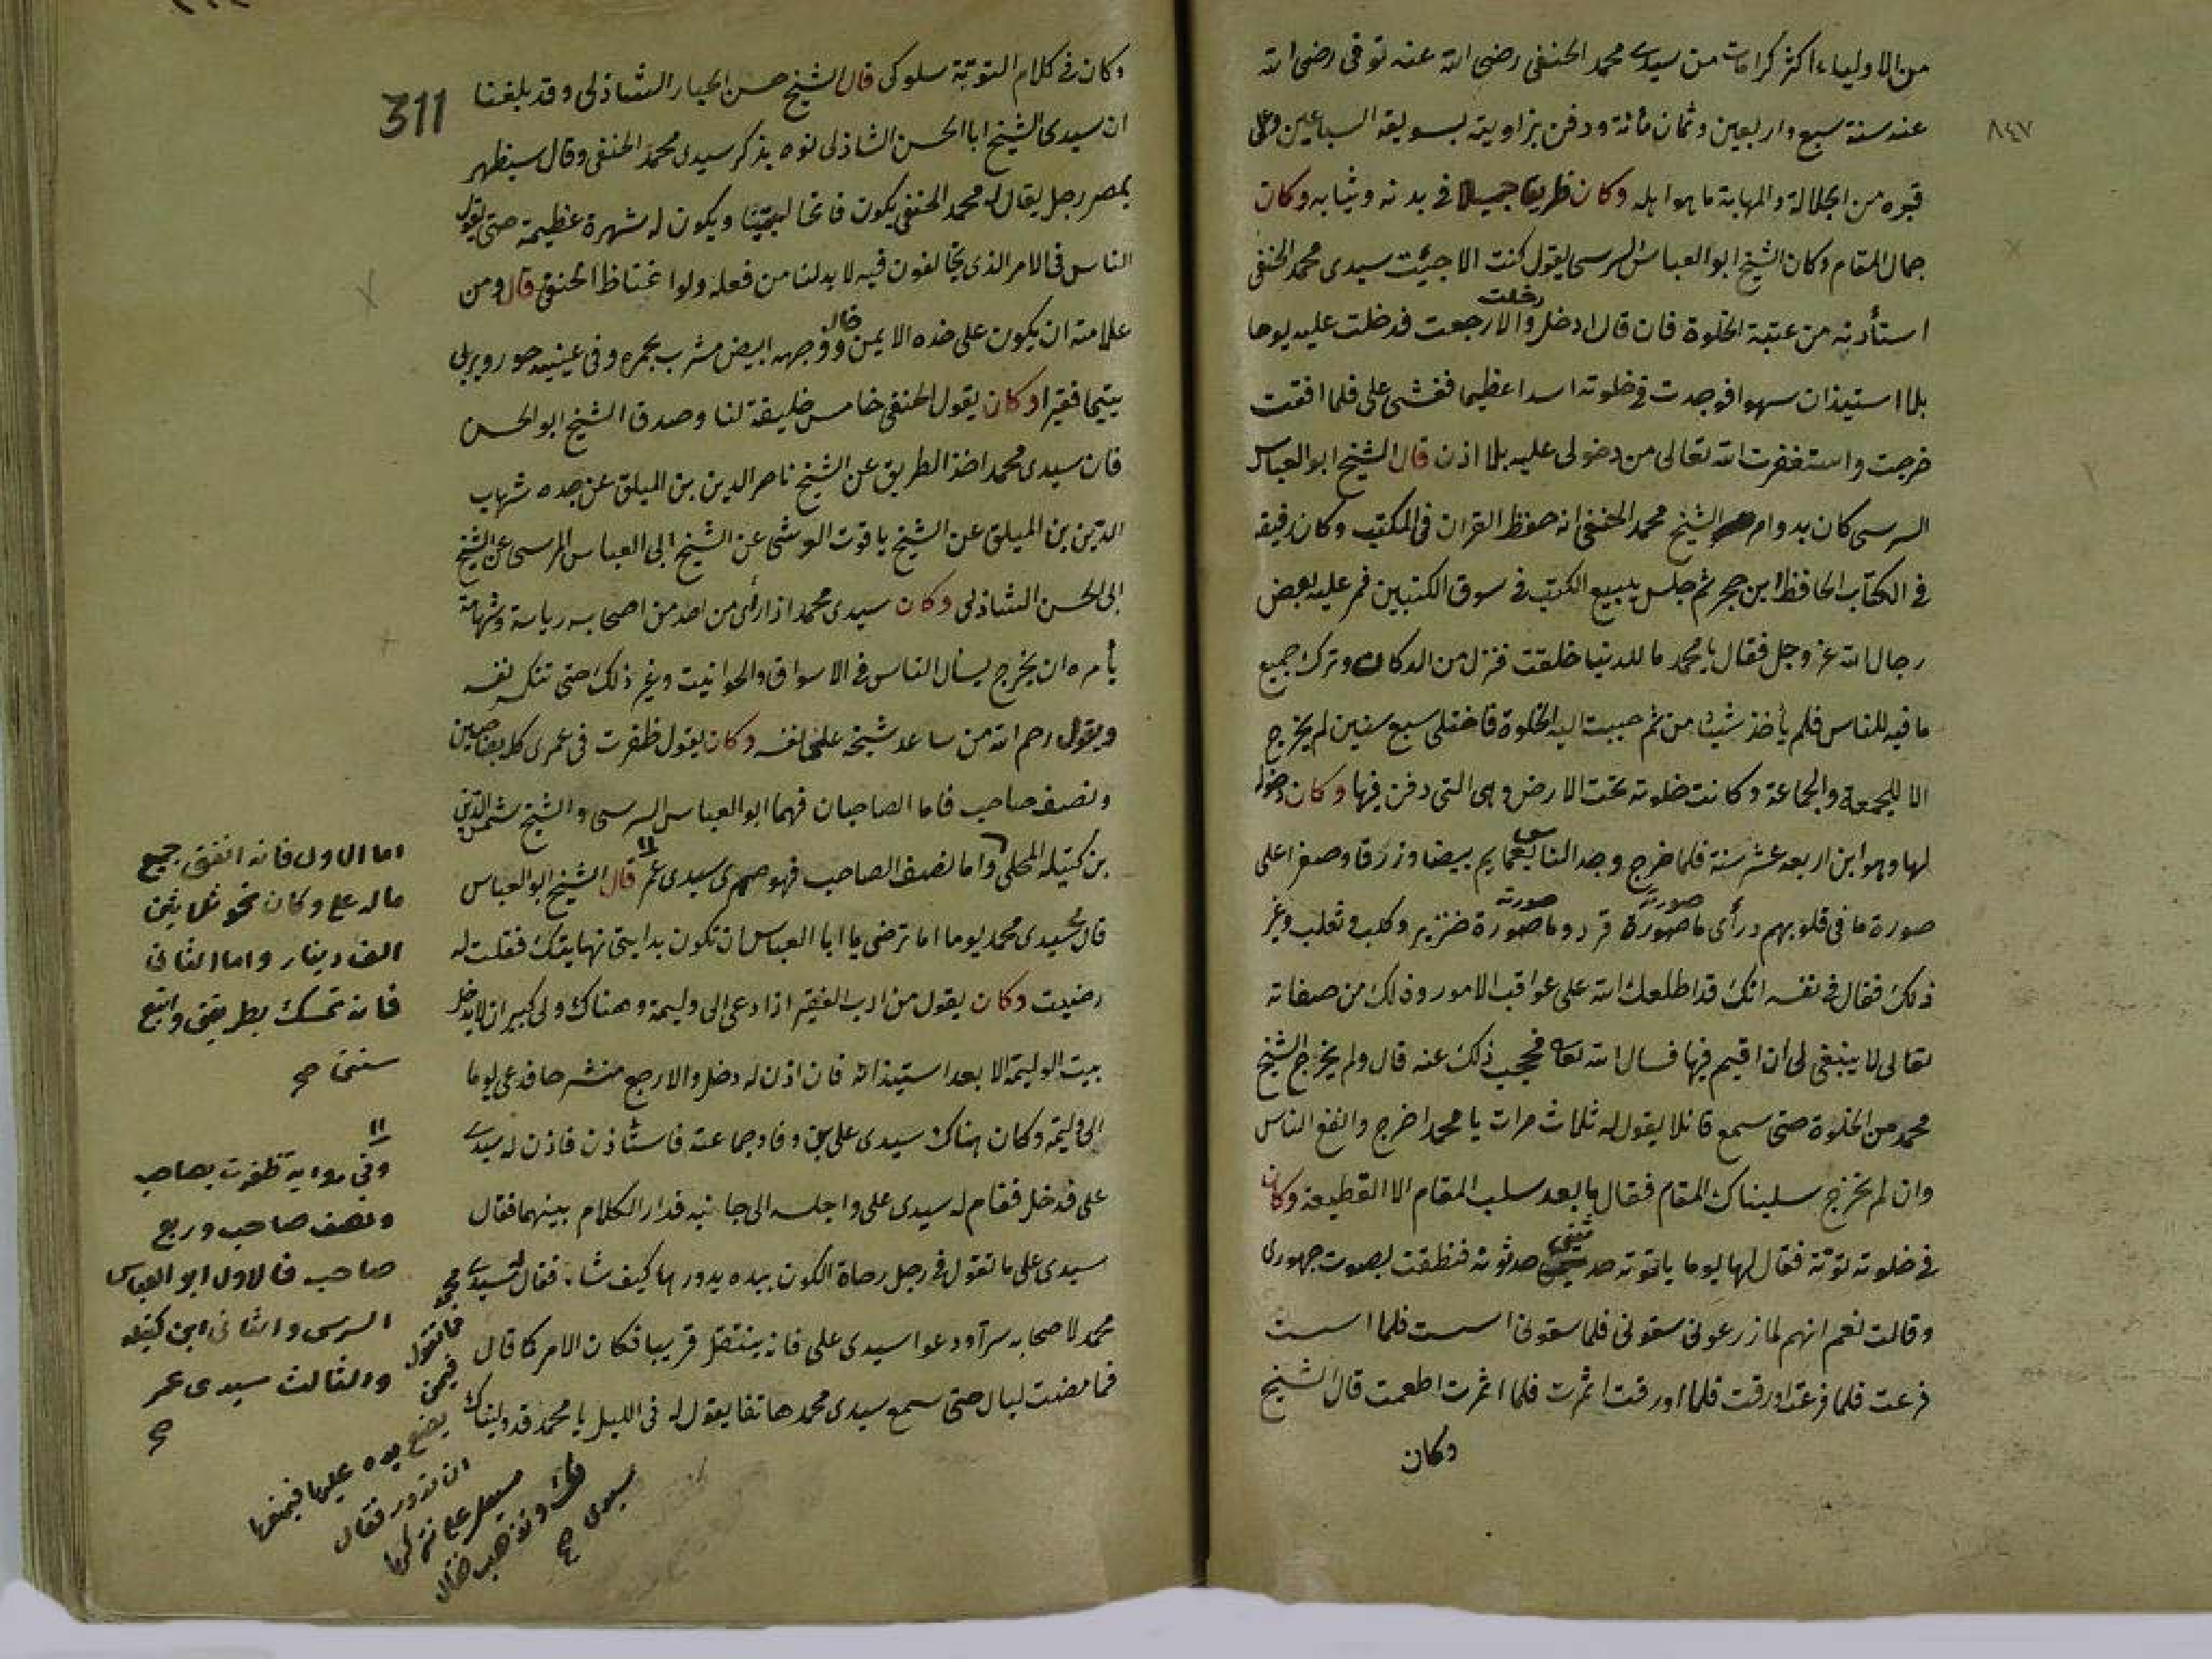 من الاولياء اكثر كرامات من سيدى محمد الحنفى رضى الله عنه توفى رضى الله
عنه سنة سبع واربعين وثمان مائة ودفن بزاويته بسويقة السباعين وعلى
٨٤٧
قبره من الجلالة والمهابة ما هو اهله وكان ظريفا جميلا فى بدنه وثيابه وكان
جمال المقام وكان الشيخ ابو العباس السرسى يقول كنت الا جيئت سيدى محمد الحنفى
استأذنه من عتبة الخلوة فان قال ادخل دخلت والا رجعت فدخلت عليه يوما
بلا استيذان سهوا فوجدت فى خلوته اسدا عظيما فغشى على فلما افقت
خرجت واستغفرت الله تعالى من دخولى عليه بلا اذن قال الشيخ ابو العباس
السرسى كان بدو امر الشيخ محمد الحنفى انه حفظ القران فى المكتب وكان رفيقه
فى الكتاب الحافظ ابن حجر ثم جلس يبيع الكتب فى سوق الكتبيين فمر عليه بعض
رجال الله عز وجل فقال يا محمد ما للدنيا خلقت فنزل من الدكان وترك جميع
ما فيه للناس فلم يأخذ شيئا من ثم حببت اليه الخلوة فاختلى سبع سنين لم يخرج
الا للجمعة والجماعة وكانت خلوته تحت الارض وهى التى دفن فيها وكان دخوله
لها وهو ابن اربعه عشر سنة فلما خرج وجد الناس بعمايم بيضا وزرقا وصفرا على
صورة ما فى قلوبهم ورأى ما صورته صورة قرد وما صورته صورة خنزير وكلب وثعلب وغير
ذلك فقال فى نفسه انك قد اطلعك الله على عواقب الامور وذلك من صفاته
تعالى لا ينبغى لى ان اقيم فيها فسال الله تعا فحجب ذلك عنه قال ولم يخرج الشيخ
محمد من الخلوة حتى سمع قائلا يقول له ثلاث مرات يا محمد اخرج وانفع الناس
وان لم تخرج سلبناك المقام فقال ما بعد سلب المقام الا القطيعة وكان
فى خلوته توتة فقال لها يوما يا توتة حدثينى حدثوتة فنطقت بصوت جهورى
وقالت نعم انهم لما زرعونى سقونى فلما سقونى اسست فلما اسست
فرعت فلما فرعت اورقت فلما اورقت اثمرت فلما اثمرت اطعمت قال الشيخ
وكان
311
وكان فى كلام التوتة سلوكى قال الشيخ حسن الخبار الشاذلى وقد بلغنا
ان سيدى الشيخ ابا الحسن الشاذلى نوه بذكر سيدى محمد الحنفى وقال سيظهر
بمصر رجل يقال له محمد الحنفى يكون فاتحا لبيتنا ويكون له شهرة عظيمة حتى يقول
الناس فى الامر الذى يخالفون فيه لا بد لنا من فعله ولو اغتاظ الحنفى قال ومن
علامته ان يكون على خده الايمن خال ووجهه ابيض مشرب بحمره وفى عينيه حور ويربى
يتيما فقيرا وكان يقول الحنفى خامس خليفة لنا وصدق الشيخ ابو الحسن
فان سيدى محمد اخذ الطريق عن الشيخ ناصر الدين بن الميلق عن جده شهاب
الدين بن الميلق عن الشيخ ياقوت العرشى عن الشيخ ابى العباس المرسى عن الشيخ
ابى الحسن الشاذلى وكان سيدى محمد اذا رأى من احد من اصحابه رياسة وشهامة
يأمره ان يخرج يسال الناس فى الاسواق والحوانيت وغير ذلك حتى تنكسر نفسه
ويقول رحم الله من ساعد شيخه على نفسه وكان يقول ظفرت فى عمرى كله بصاحبين
ونصف صاحب فاما الصاحبان فهما ابو العباس السرسى والشيخ شمس الدين
بن كتيله المحلى واما نصف الصاحب فهو صهرى سيدى عمر قال الشيخ ابو العباس
قال لى سيدى محمد يوما اما ترضى يا ابا العباس ان تكون بدايتى نهايتك فقلت له
رضيت وكان يقول من ادب الفقير اذا دعى الى وليمة وهناك ولى كبير ان لا يدخل
بيت الوليمة الا بعد استيذانه فان اذن له دخل والا رجع منشرحا فدعى يوما
الى وليمه وكان هناك سيدى على بن وفا وجماعته فاستأذن فاذن له سيدى
على فدخل فقام له سيدى على واجلسه الى جانبه فدار الكلام بينهما فقال
سيدى على ما تقول فى رجل رحاة الكون بيده يدورها كيف شاء فقال له سيدى محمد
محمد لاصحابه سرا ودعوا سيدى على فانه ينتقل قريبا فكان الامر كما قال
فما مضت ليال حتى سمع سيدى محمد هاتفا يقول له فى الليل يا محمد قد وليناك
اما الاول فانه انفق جميع
ماله على وكان نحو ثلاثين
الف دينار واما الثانى
فانه تمسك بطريقتى واتبع
سنتى صح
وفى رواية ظفرت بصاحب
ونصف صاحب وربع
صاحب فالاول ابو العباس
السرسى والثانى ابن كتيله
والثالث سيدى عمر
فما تقول
فيمن
يضع يده عليها فيمنعها
ان تدور فقال
سيدى صح